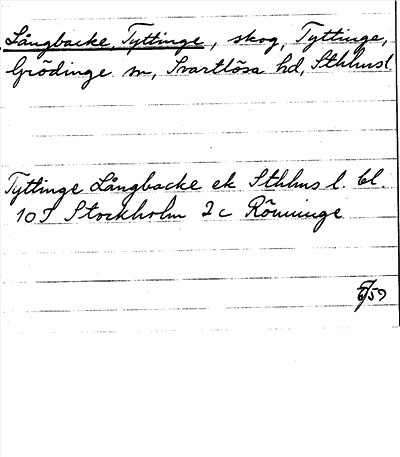 Långbacke, Tyttinge, skog, Tyttinge,
Grödinge sn, Svartlösa hd, Sthlmsl.
Tyttinge Långbacke ek Sthlms l. bl.
10I Stockholm 2c Rönninge
59